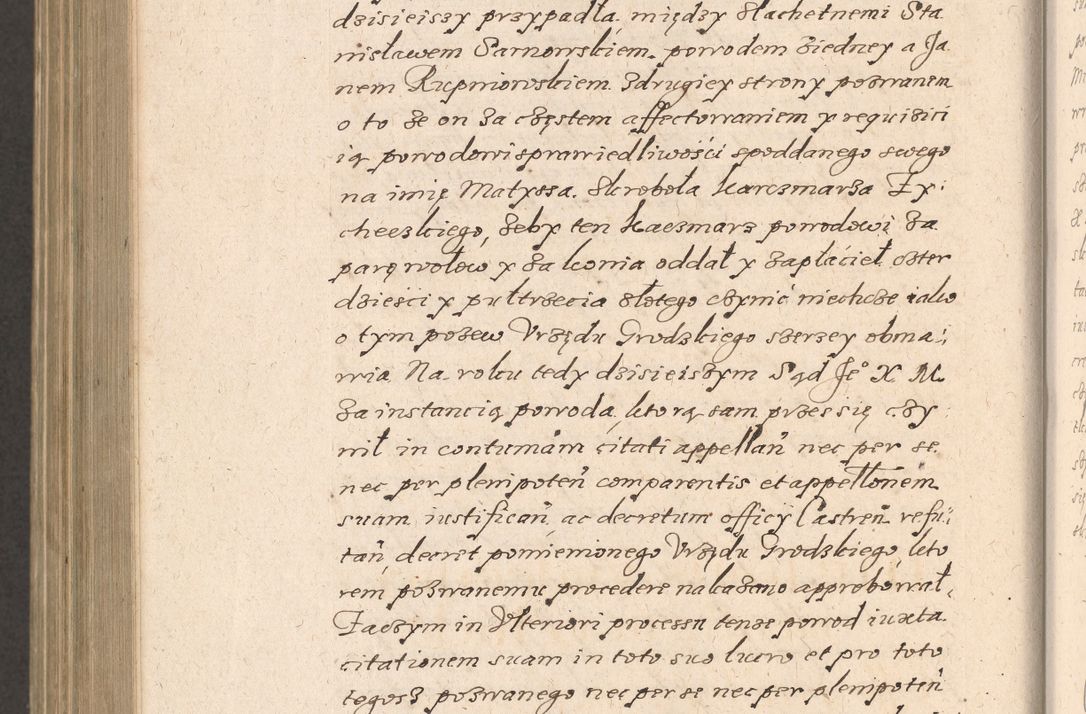 dzisieiszy przypadła, między Slachetnemi Sta
nisławem Sarnowskiem powodem ziedney a Ja
nem Rupniowskiem zdrugiey strony pozwanem
o to że on za częstem affectowaniem y requizici
ią powodowi sprawiedliwości spoddanego swego
na imię Matyssa. Skrobola karczmarza Zy:
checkiego, żeby ten kaczmarz powodowi za
parę wołow y za konia oddał y zapłácieł czter
dzieści y pułtrzecia złotego czynić niechcze iako
o tym pozew Vrzędu Grodzkiego szerzey obma:
wia. Na roku tedy dzisieiszym Sąd Je° X M.
za instancią powoda, ktorą sam przes się czy
nił in contumam citati appellañ nec per se
nec per plenipoteñ comparentis et appellõnem
suam iustificañ, ac decretum officÿ Castreñ refu:
tañ, decret pomienionego Vrzędu Grodzkiego, kto
rem pozwanemu procedere nakazano approbował,
Zaczym in Vlteriori processu tense powod iuxta
citationem suam in toto suo lucro et pro toto
togosz pozwanego nec per se nec per plenipoteñ